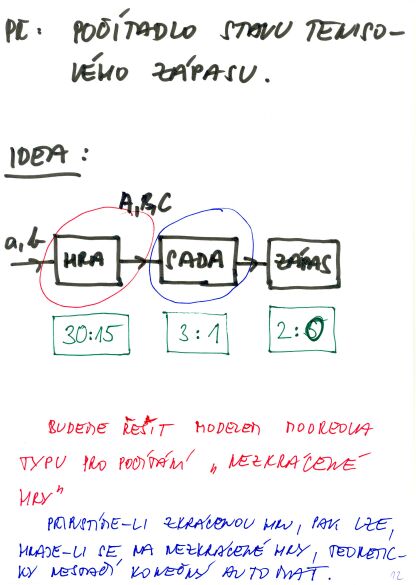 PŘ: POČÍTADLO STAVU TENISO-
VÉHO ZÁPASU.
IDEA:
A,B,C
a,b
HRA
SADA
ZÁPAS
30:15
3:1
2:0
BUDEME ŘEŠIT MODELEM MOOREOVA
TYPU PRO POČÍTÁNÍ „NEZKRÁCENÉ
HRY"
PŘIPUSTÍME-LI ZKRÁCENOU HRU, PAK LZE,
HRAJE-LI SE NA NEZKRÁCENÉ HRY, TEORETIC-
KY NESTAČÍ KONEČNÝ AUTOMAT.
12